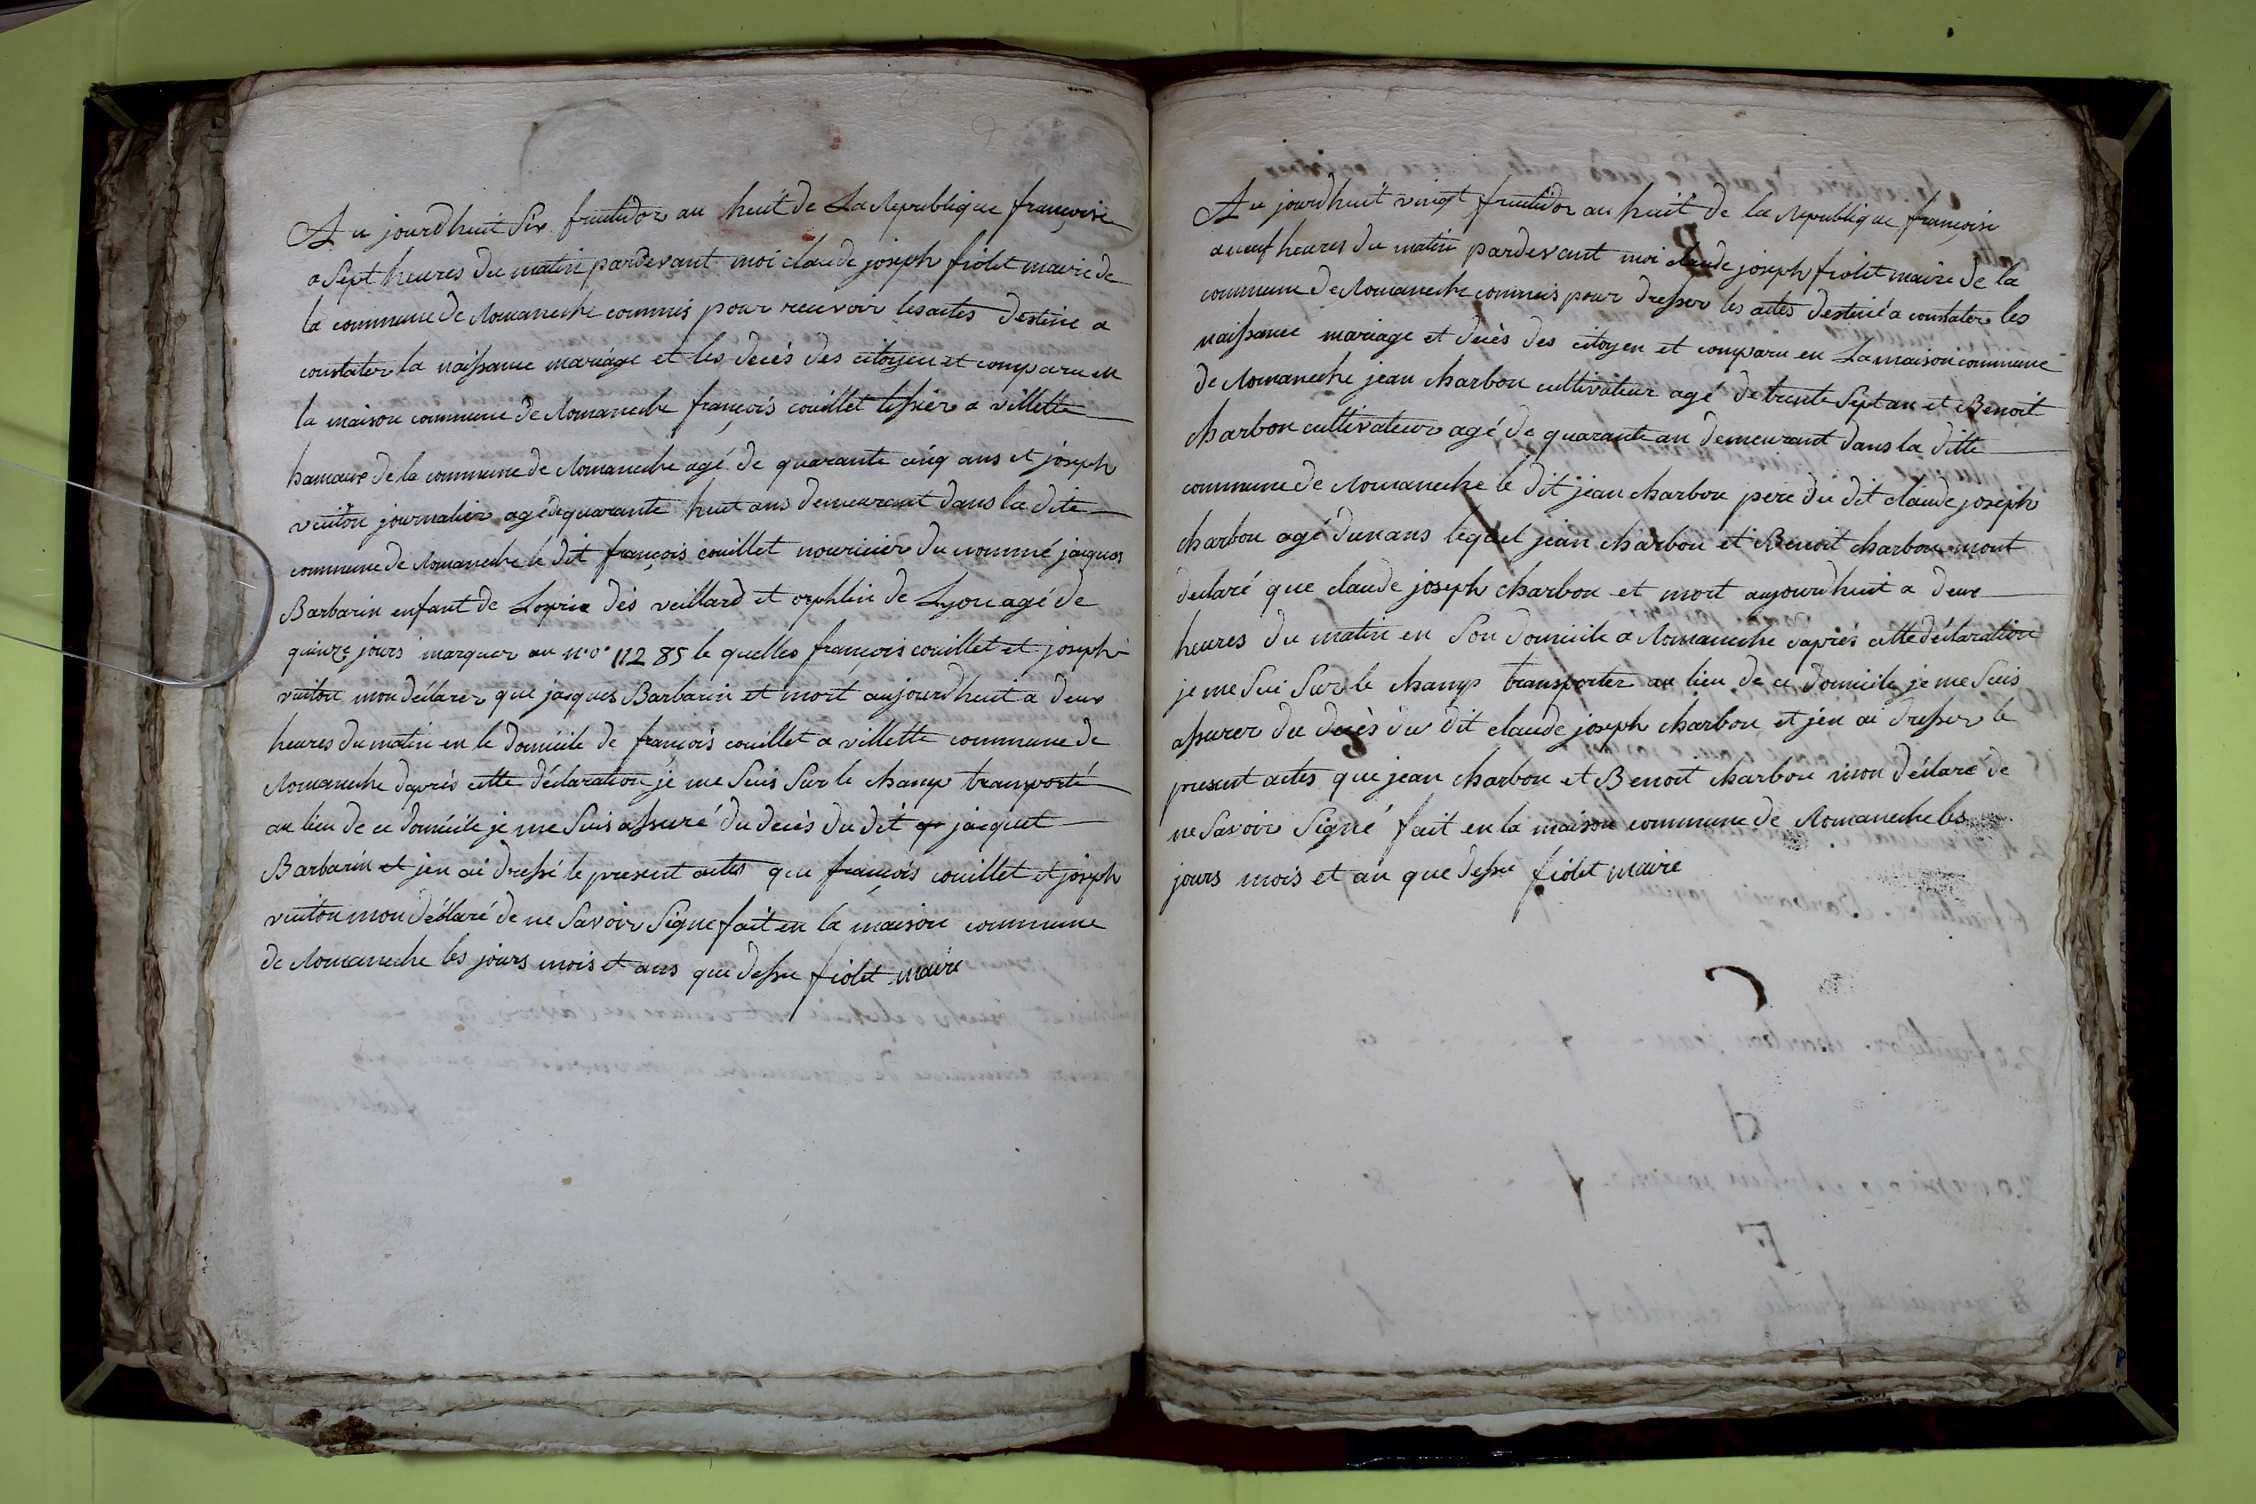 Au jourdhuit Six fruitidor an huit de La Republique françoise
a Sept heures du matin pardevant moi claude joseph fiolet maire de
la commune de Romaneche commis pour recevoir les actes destine a
constater la naissance mariage et les decès des citoyen et comparu en
la maison commune de Romaneche françois couillet tissier a villette
hamaux de la commune de Romaneche agé de quarante cinq ans et joseph
vuiton journalier agé de quarante huit ans demeurant dans la dite
commune de Romaneche le dit françois couillet nouricier du nommé jacques
Barbarin enfant de Lopice des veillard et orphlin de Lyon agé de
quinze jours marquer au n.o. 112 85 le quelles françois couillet et joseph
vuiton mon declarer que jacques Barbarin et mort aujourdhuit a deux
heures du matin en le domicile de françois couillet a villette commune de
Romaneche daprès cette declaration je me Suis Sur le champ transporté
au lieu de ce domicile je me Suis assuré du decès du dit jacquet
Barbarin et jen ai dressé le present actes que françois couillet et joseph
vuiton mon déclaré de ne Savoir Signe fait en la maison commune
de Romaneche les jours mois et ans que dessu fiolet maire
Au jourdhuit vingt fruitidor an huit de la Republique françoise
a neuf heures du matin pardevant moi claude joseph fiolet maire de la
commune de Romaneche commis pour dresser les actes destiné a constater les
naissance mariage et decès des citoyen et comparu en La maison commune
de Romaneche jean charbon cultivateur agé de trente Sept an et Benoit
charbon cultivateur agé de quarante an demeurant dans la ditte
commune de Romaneche le dit jean charbon pere du dit claude joseph
charbon agé dun ans lequel jean charbon et Benoit charbon mont
declaré que claude joseph charbon et mort aujourdhuit a deux
heures du matin en Son domicile a Romaneche daprès cette déclaration
je me Sui Sur le champ transporter au lieu de ce domicile je me Suis
assurer du decès du dit claude joseph charbon et jen ai dresser le
present actes que jean charbon et Benoit charbon mon déclare de
ne Savoir Signé fait en la maison commune de Romaneche les
jours mois et an que dessu fiolet maire